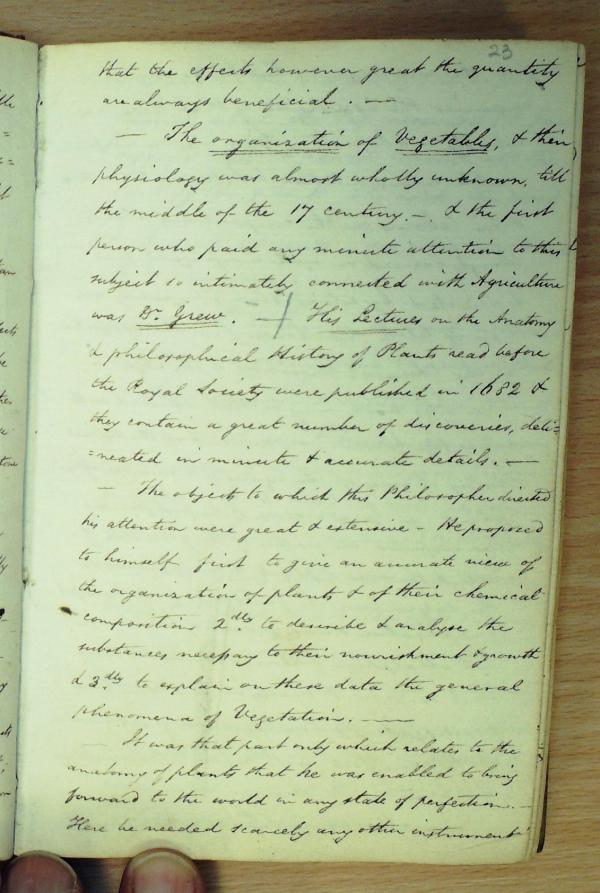 23
that the effects however great the quantity
are always beneficial. —
— The organization of Vegetables, & their
physiology was almost wholly unknown, till
the middle of the 17 century. – & the first
person who paid any minute attention to this
subject so intimately connected with Agriculture
was Dr. Grew. — His Lectures on the Anatomy
& philosophical History of Plants read before
the Royal Society were published in 1682 &
they contain a great number of discoveries, deli=
=neated in minute & accurate details. —
— The objects to which this Philosopher directed
his attention were great & extensive – He proposed
to himself first to give an accurate view of
the organization of plants & of their chemical
composition 2dly to describe & analyse the
substances necessary to their nourishment & growth
& 3dly to explain on these data the general
phenomena of Vegetation. —
— It was that part only which relates to the
anatomy of plants that he was enabled to bring
forward to the world in any state of perfection. –
Here he needed scarcely any other instrument